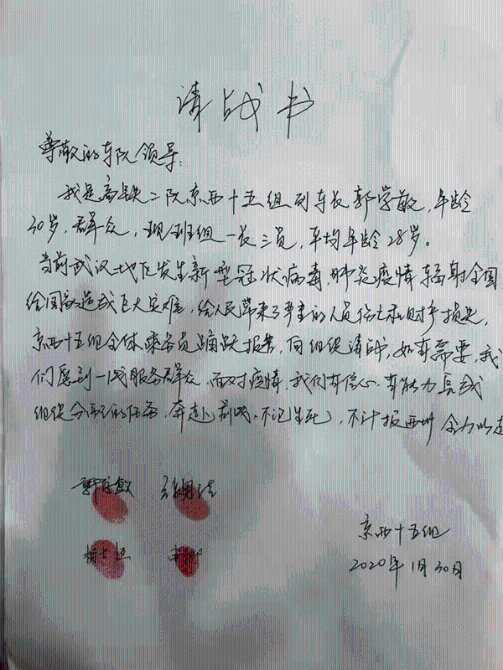 请战书
尊敬的车队领导:
我是高铁二队京西十五组列车长郭学敏,年龄
30岁,群众,现班组一长三员,平均年龄28岁。
当前武汉地区发生新型冠状病毒,肺炎疫情辐射全国
给国家造成巨大灾难,给人民带来了严重的人员伤亡和财产损失,
京西十五组全体乘务员踊跃报名,向组织请师,如有需要,我
们愿到一线服务群众,面对疫情,我们有信心,有能力完成
组织分配的任务,奔赴前线,不记生死,不计报酬全力以赴
郭学敏
京西十五组
2020年1月30日